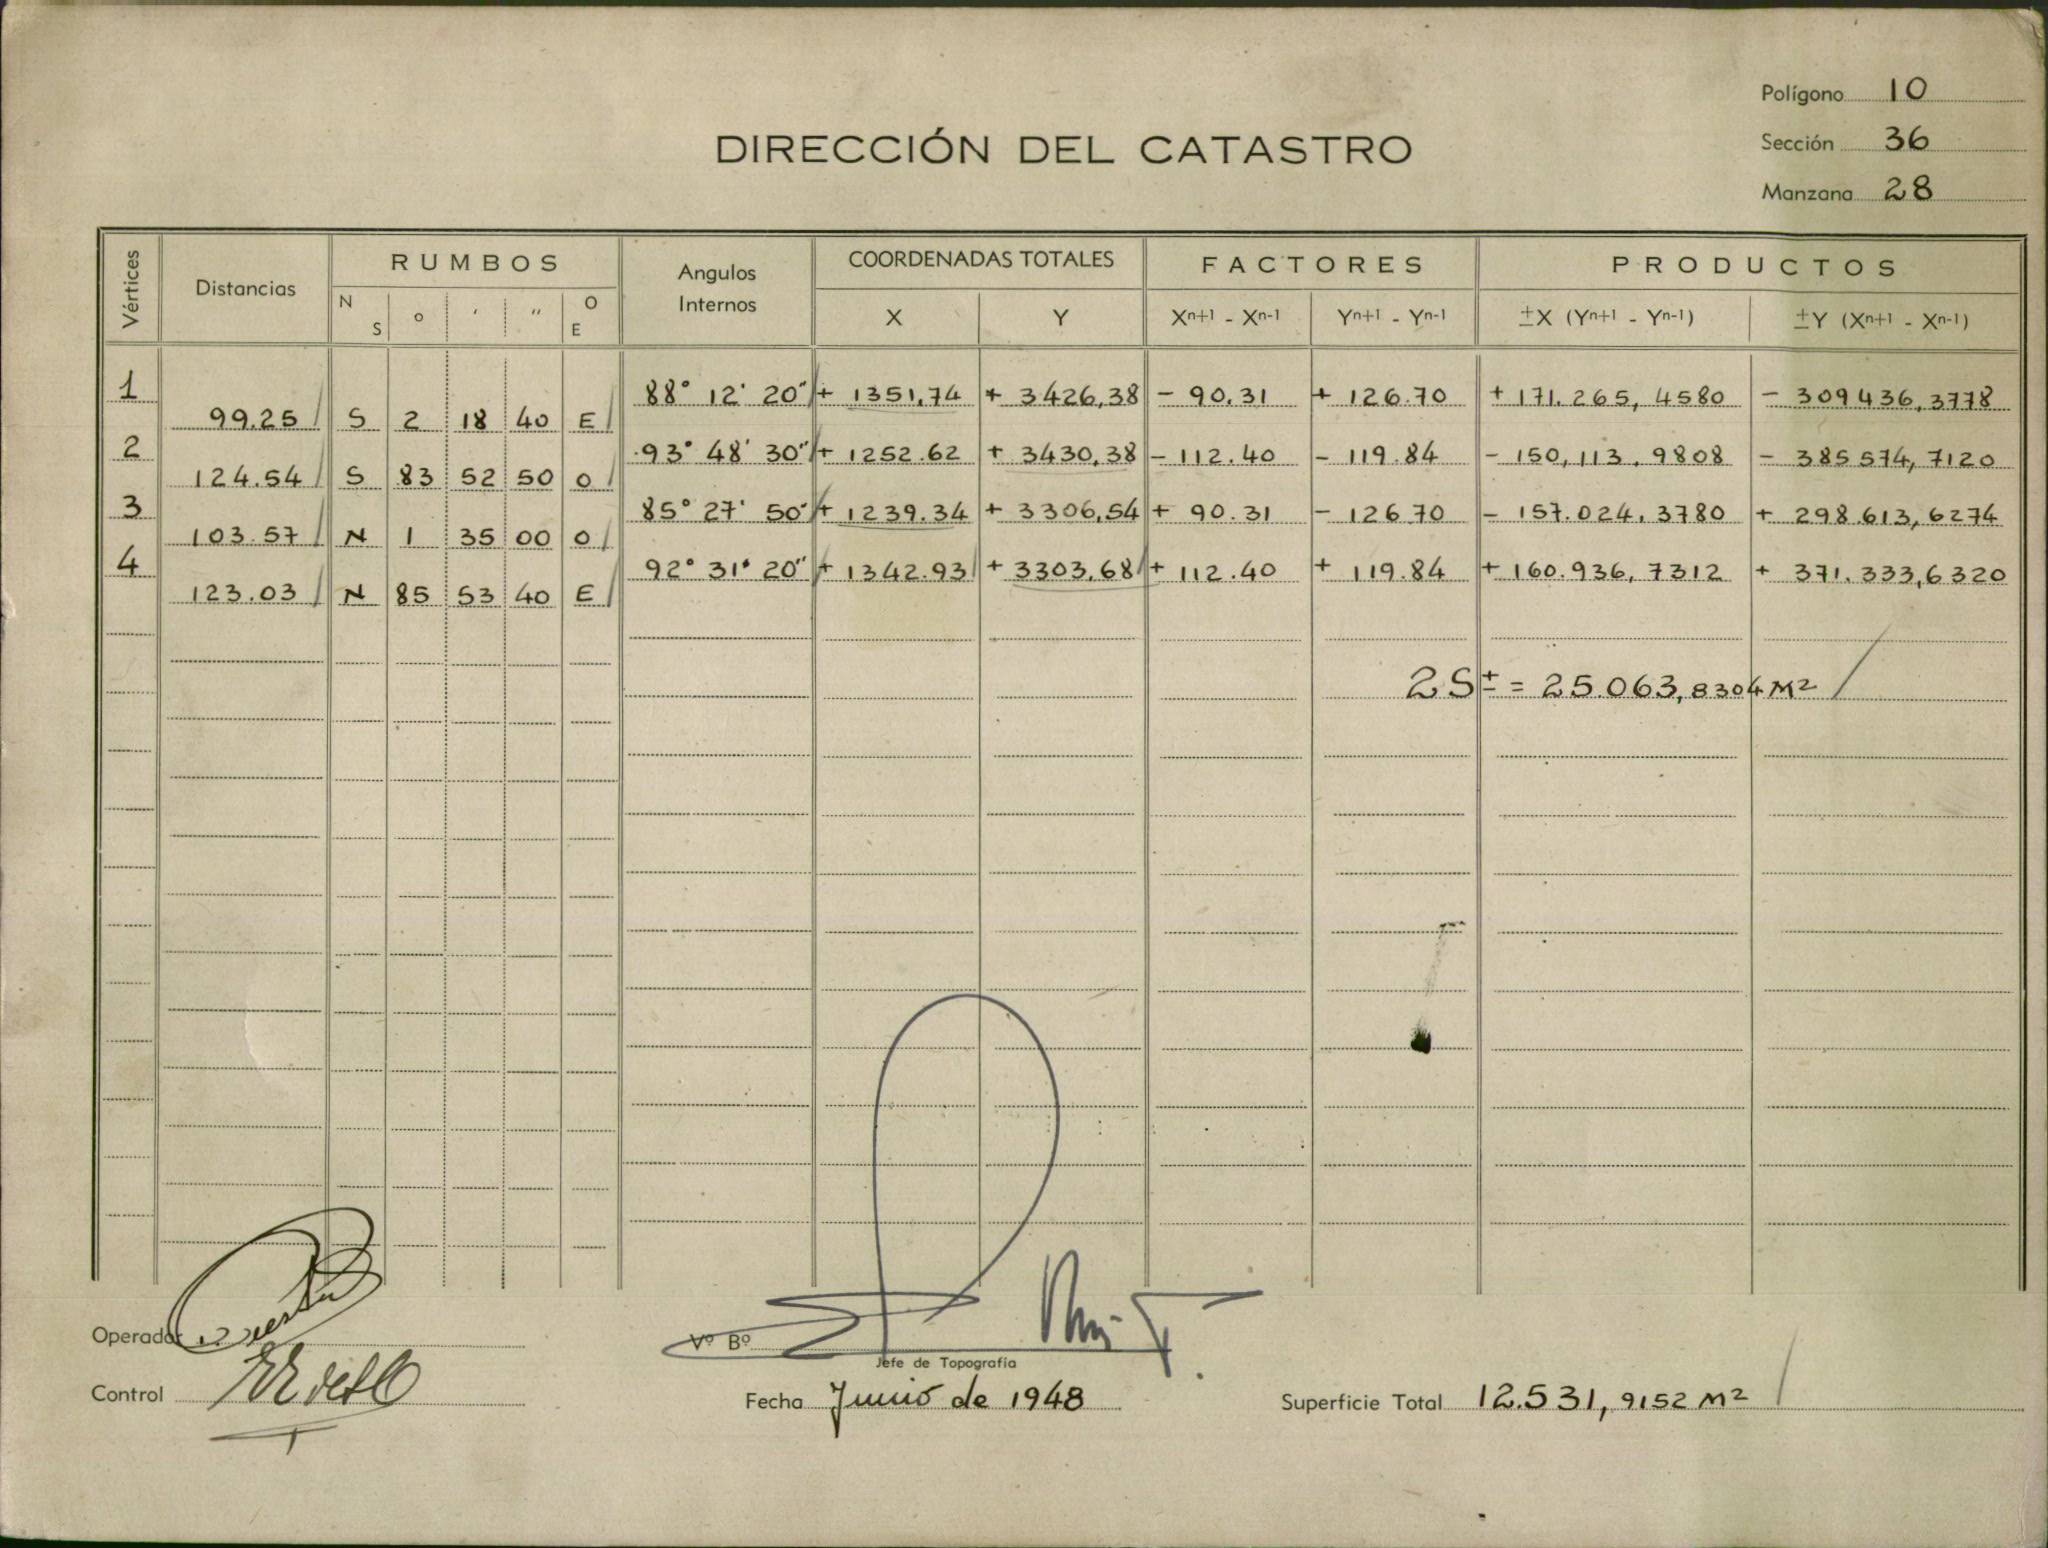 Polígono 10
DIRECCIÓN DEL CATASTRO
Sección 36
Manzana 28
Vértices Distancias RUMBOS Angulos Internos COORDENADAS TOTALES FACTORES PRODUCTOS
N S ° ' " O E X Y Xn+1 - Xn-1 Yn+1 - Yn-1 ±X (Yn+1 - Yn-1) ±Y (Xn+1 - Xn-1)
1 88° 12' 20" + 1351,74 + 3426,38 - 90.31 + 126.70 + 171.265, 4580 - 309436,3778
99.25 S 2 18 40 E
2 93° 48' 30" + 1252.62 + 3430,38 - 112.40 - 119.84 - 150,113.9808 - 385574,7120
124.54 S 83 52 50 O
3 85° 27' 50" + 1239.34 + 3306,54 + 90.31 - 126.70 - 157.024.3780 + 298.613,6274
103.57 N 1 35 00 O
4 92° 31' 20" + 1342.93 + 3303,68 + 112.40 + 119.84 + 160.936, 7312 + 371.333,6320
123.03 N 85 53 40 E
2S± = 25.063,8304 M²
Operador
Vº Bº
Jefe de Topografía
Control
Fecha Junio de 1948
Superficie Total 12.531,9152 M²